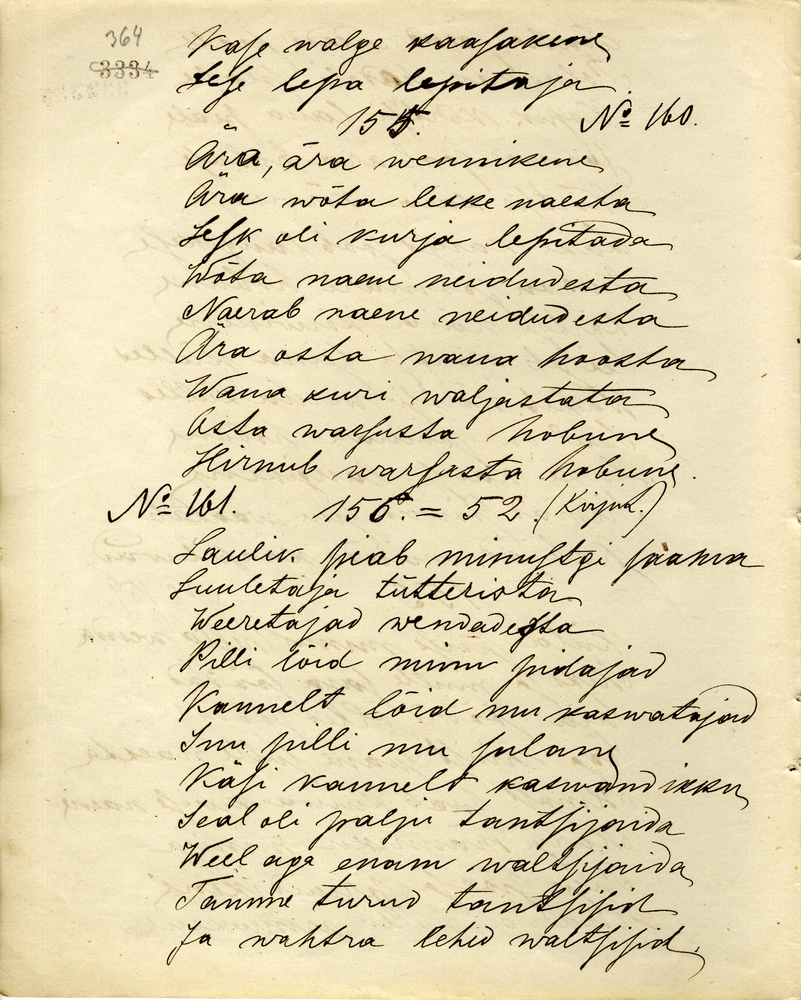 364
3334
Kase walge kaasakene
Sese lepa lepitaja.
155. № 160.
Ära, ära wennikene
Ära wõta leske naesta
Lesk oli kurja lepitada
Wõta naene neidudesta
Naerab naene neidudesta
Ära osta wana hoosta
Wana kuri waljastata
Osta warsusta hobune
Hirnub warsasta hobune.
№ 161. 156. = 52 (Kirjut.)
Laulik piab minustgi saama
Luuletaja tütterista
Weeretajad wendadesta
Pilli lõid minu pidajad
Kannelt lõid mu kaswatajad
Suu pilli mu sulane
Käsi kannelt kaswandikku
Seal oli palju tantsijaida
Weel aga enam waltsijaida
Tamme turud tantsisid
Ja wahtra lehed waltsisid.